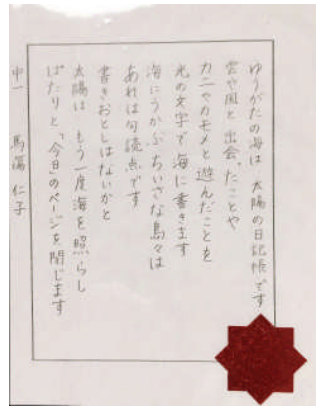 ゆうがたの海は 太陽の日記帳です
雲や風と出会ったことや
カニやカモメと遊んだことを
光の文字で海に書きます
海にうかぶちいさな島々は
あれは句読点です
書きおとしはないかと
太陽は もう一度海を照らし
ぱたりと、「今日」のページを閉じます
中一 馬場 仁子